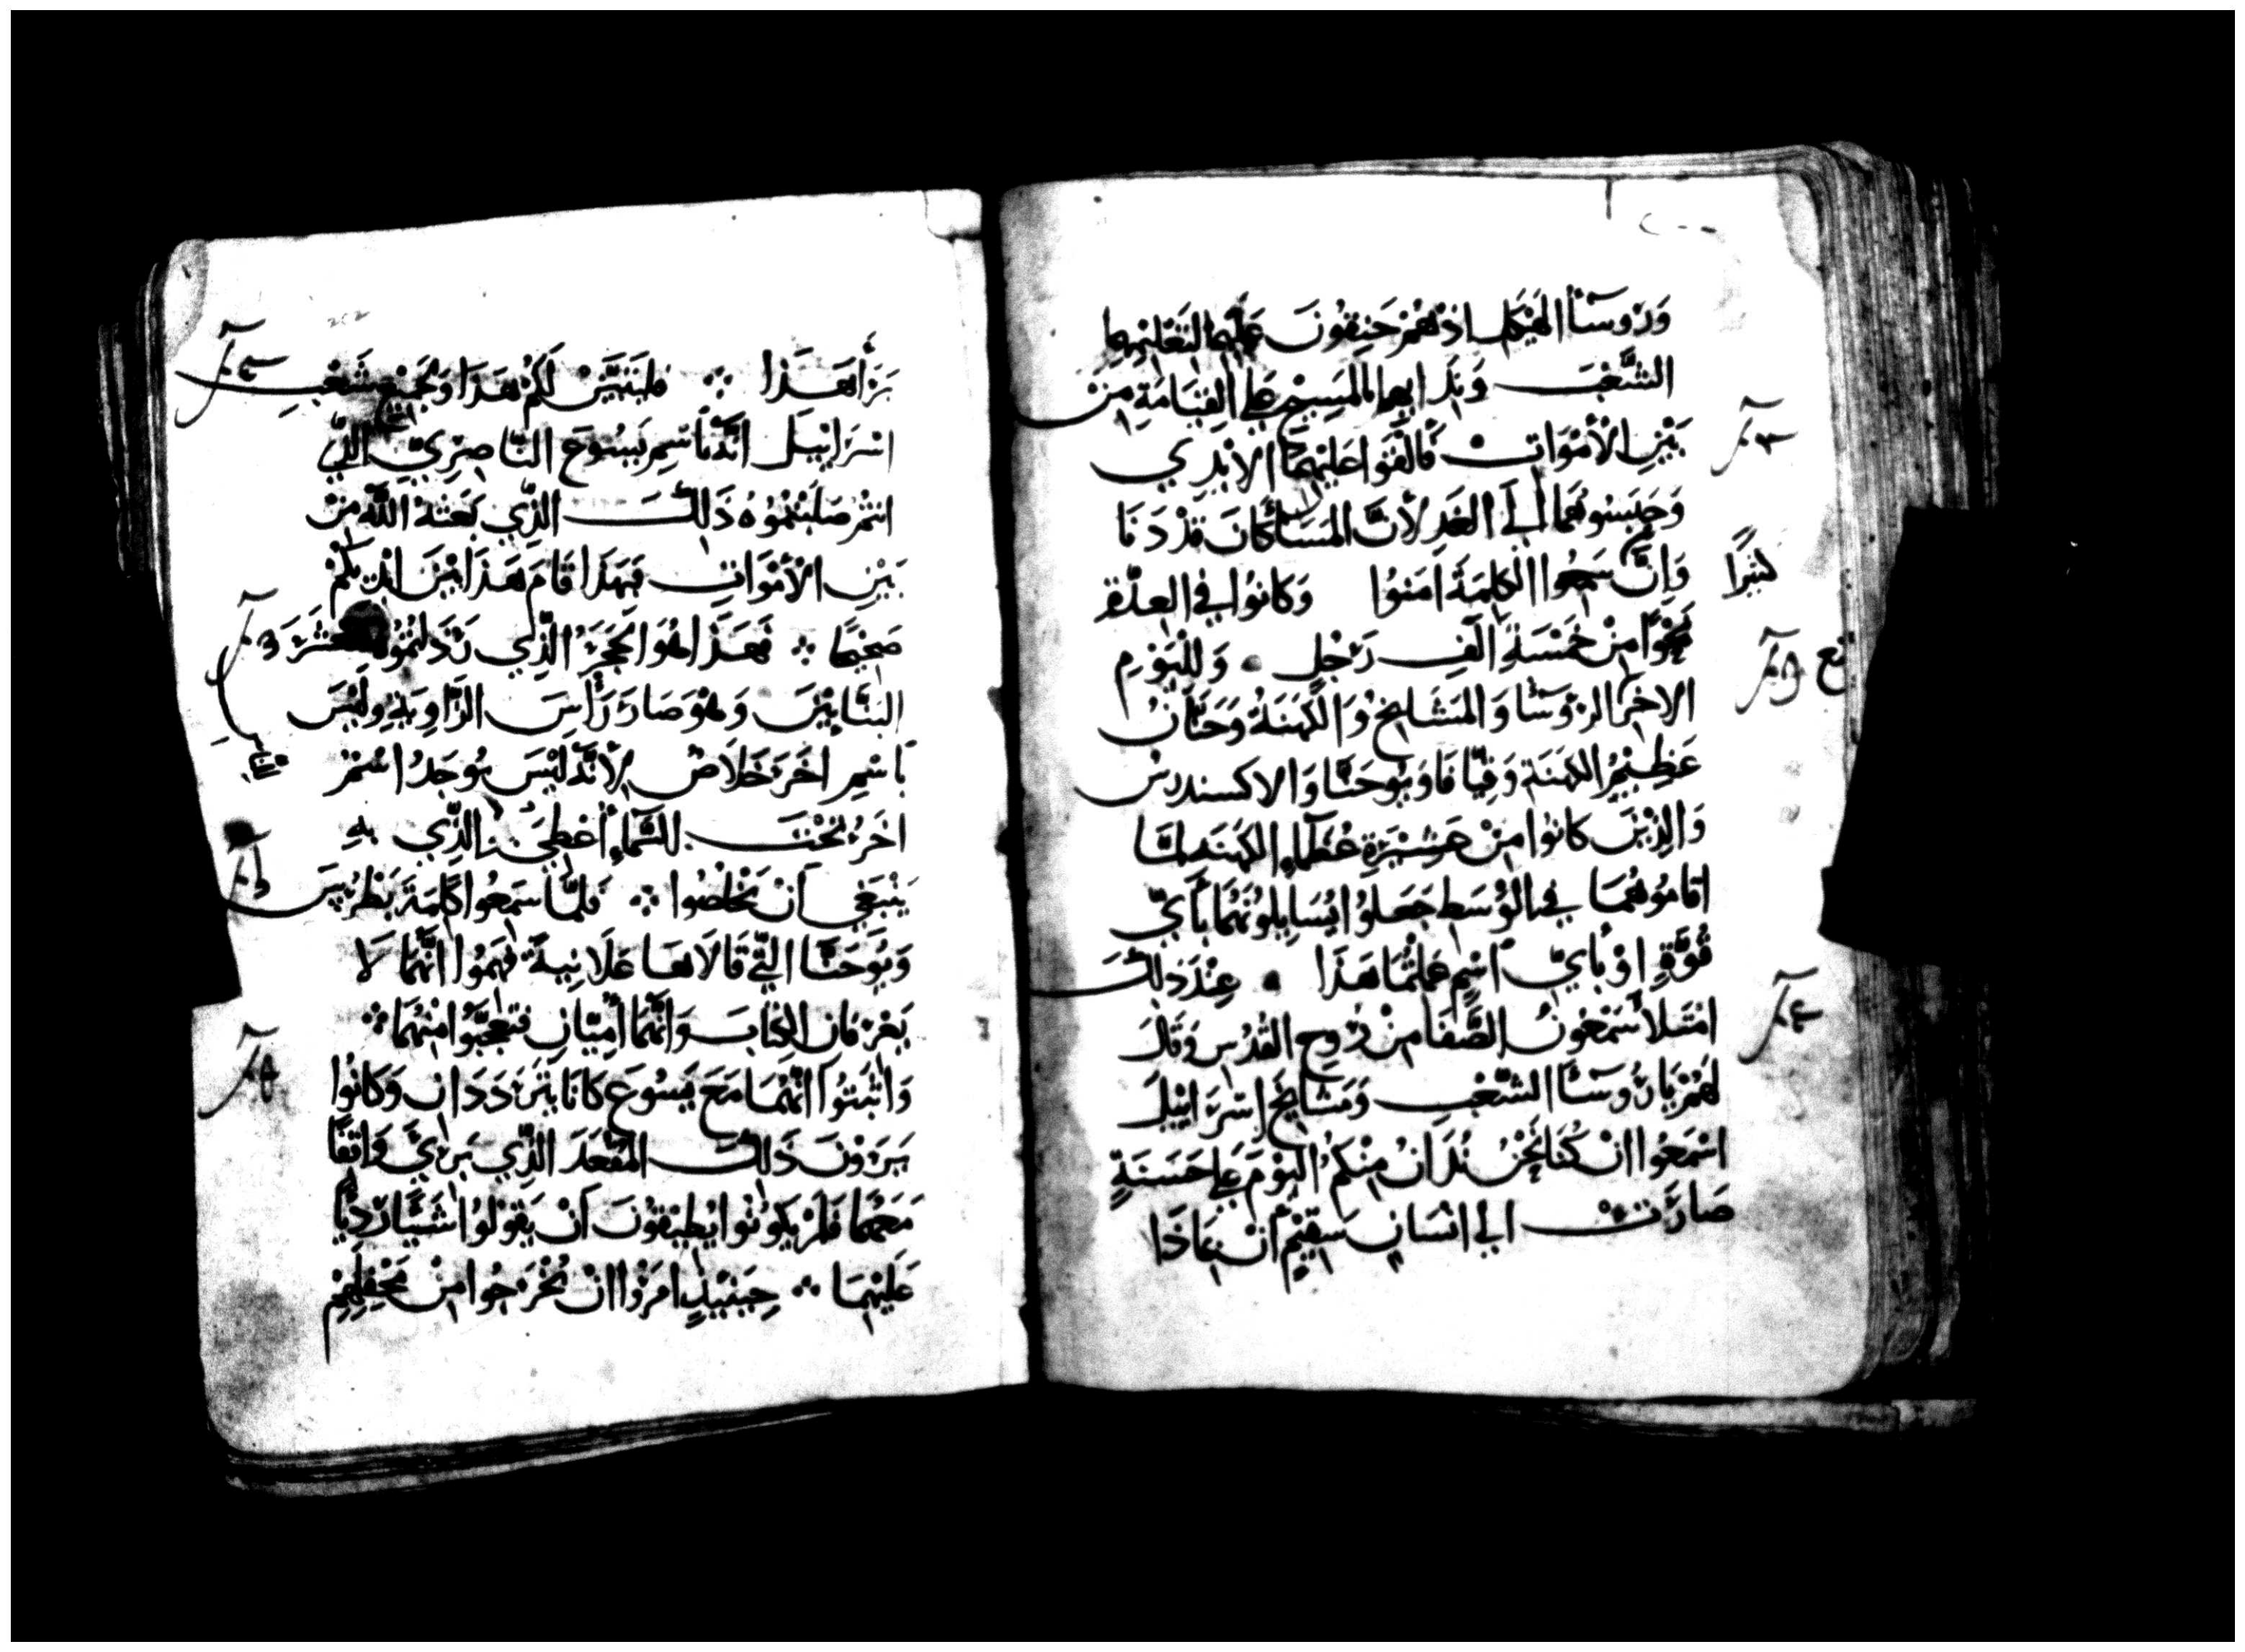 وَرُوسَآ الهَيْكَل اذ هُمْ حَنِقُونَ عَلَيهما لتَعْليمِهما
الشَّعْبَ وَنِدَايهما بالمَسِيْحِ عَلي القِيَامَةِ مِنْ
بَيْنِ الأَمْوَاتِ فَالْقَوا عَلَيْهِمَا الايْدِي
وَحَبَسُوهُمَا اِلَي الغَدِ لأَنَّ المَسَا كَانَ قَدْ دَنَا
وَاِنَّ سَمِعُوا الكلِمَةَ امَنُوا وَكانُوا في العِدَّة
كثيرًا
نَحْوًا مِنْ خَمْسَةِ الَفِ رَجُلٍ وَلليَوْمِ
الاخَرِ الروسَا وَالمَشَايِخُ وَالكَهَنَةُ وَحَنَّانُ
عَظِيْمُ الكهَنَةِ وَقِيَّافَا وَيُوحَنَّا وَالاكسندرس
وَالذِيْنَ كانوا مِنْ عَشِيْرَةِ عُظَمَآءِ الكهَنَهِ لمَّا
اقامُوهُمَا في الوُسَطِ جَعَلوُا يُسَايِلوُنَهُمَا بأَيِّ
قُوَّةٍ اوْ بأَيِّ اسْمٍ عَمِلتُمَا هَذَا عِنْدَ ذلِكَ
امْتَلأَ سَمْعُونُ الصَّفَا مِنْ رُوحِ القُدُسِ وَقَالَ
لهَمْ يَا رُوسَآ الشَّعْبِ وَمَشَايِخَ اسْرَايْيلَ
اسْمَعُوا انْ كُنَا نَحْنُ نُدَانُ مِنْكُم اليَوْمَ عَلي حَسَنَةٍ
صَارَتْ الي انْسَانٍ سَقِيْمٍ ان بمَاذَا
بَرَأَ هَذا فليَتَبَيَّنْ لَكُمْ هَذَا وَلجَمِيْعِ شَعْبِ
اسْرَايْيلَ انَّهُ باسْمِ يَسُوعَ النَّاصِرِيِّ الذِّي
انتُمْ صَلبْتُمُوُهُ ذَلِكَ الذِّي بَعَثهُ اللّه مِنْ
بَيْنِ الأَمْوَاتِ فبِهَذَا قَامَ هَذَا بَيْنَ ايْدِيكُمْ
صَحِيْحًا فَهَذَا هُوَ الحَجَرُ الذِّي رَذَلتُمُوهُ مَعْشَرَ
البَنَّايِيْنَ وَهُوَ صَارَ رَأْسَ الزَّاوِيَهِ وَلَيْسَ
بَاسْمِ اخَرَ خَلَاصٌ لأَنَّهُ لَيْسَ يُوجَدُ اسْمٌ
اخَرُ تَحْتَ السَّمَاءِ أُعْطِيَ الذِّي بهِ
يَنْبَغِي اَنْ يَخْلُصُوا فَلمَّا سَمِعُوا كَلِمَةَ بَطْرُسَ
وَيُوحَنَّا التِّي قَالَاهَا عَلَانِيةً فَهِمُوا انَّهُمَا لَا
يَعْرِفانِ الكِتابَ وَانَّهُمَا أُمِيَّانِ فتَعَجَّبُوا مِنْهُمَا
وَاثْبَتُوا انَّهُمَا مَعَ يَسُوعَ كَانَا يَتَرَدَدَانِ وَكانُوا
يَرَوْنَ ذَلِكَ المُقْعَدَ الذِّي بَرِيَ وَاقِفًا
مَعَهُمَا فَلَمْ يَكوُنُوا يُطِيْقُونَ اَنْ يَقوُلوُا شَيًّا رَدِيًّا
عَلَيْهِمَا حِيَنْيِذٍ امَرُوا انْ يُخْرَجُوا مِنْ مَحْفِلِهِمْ